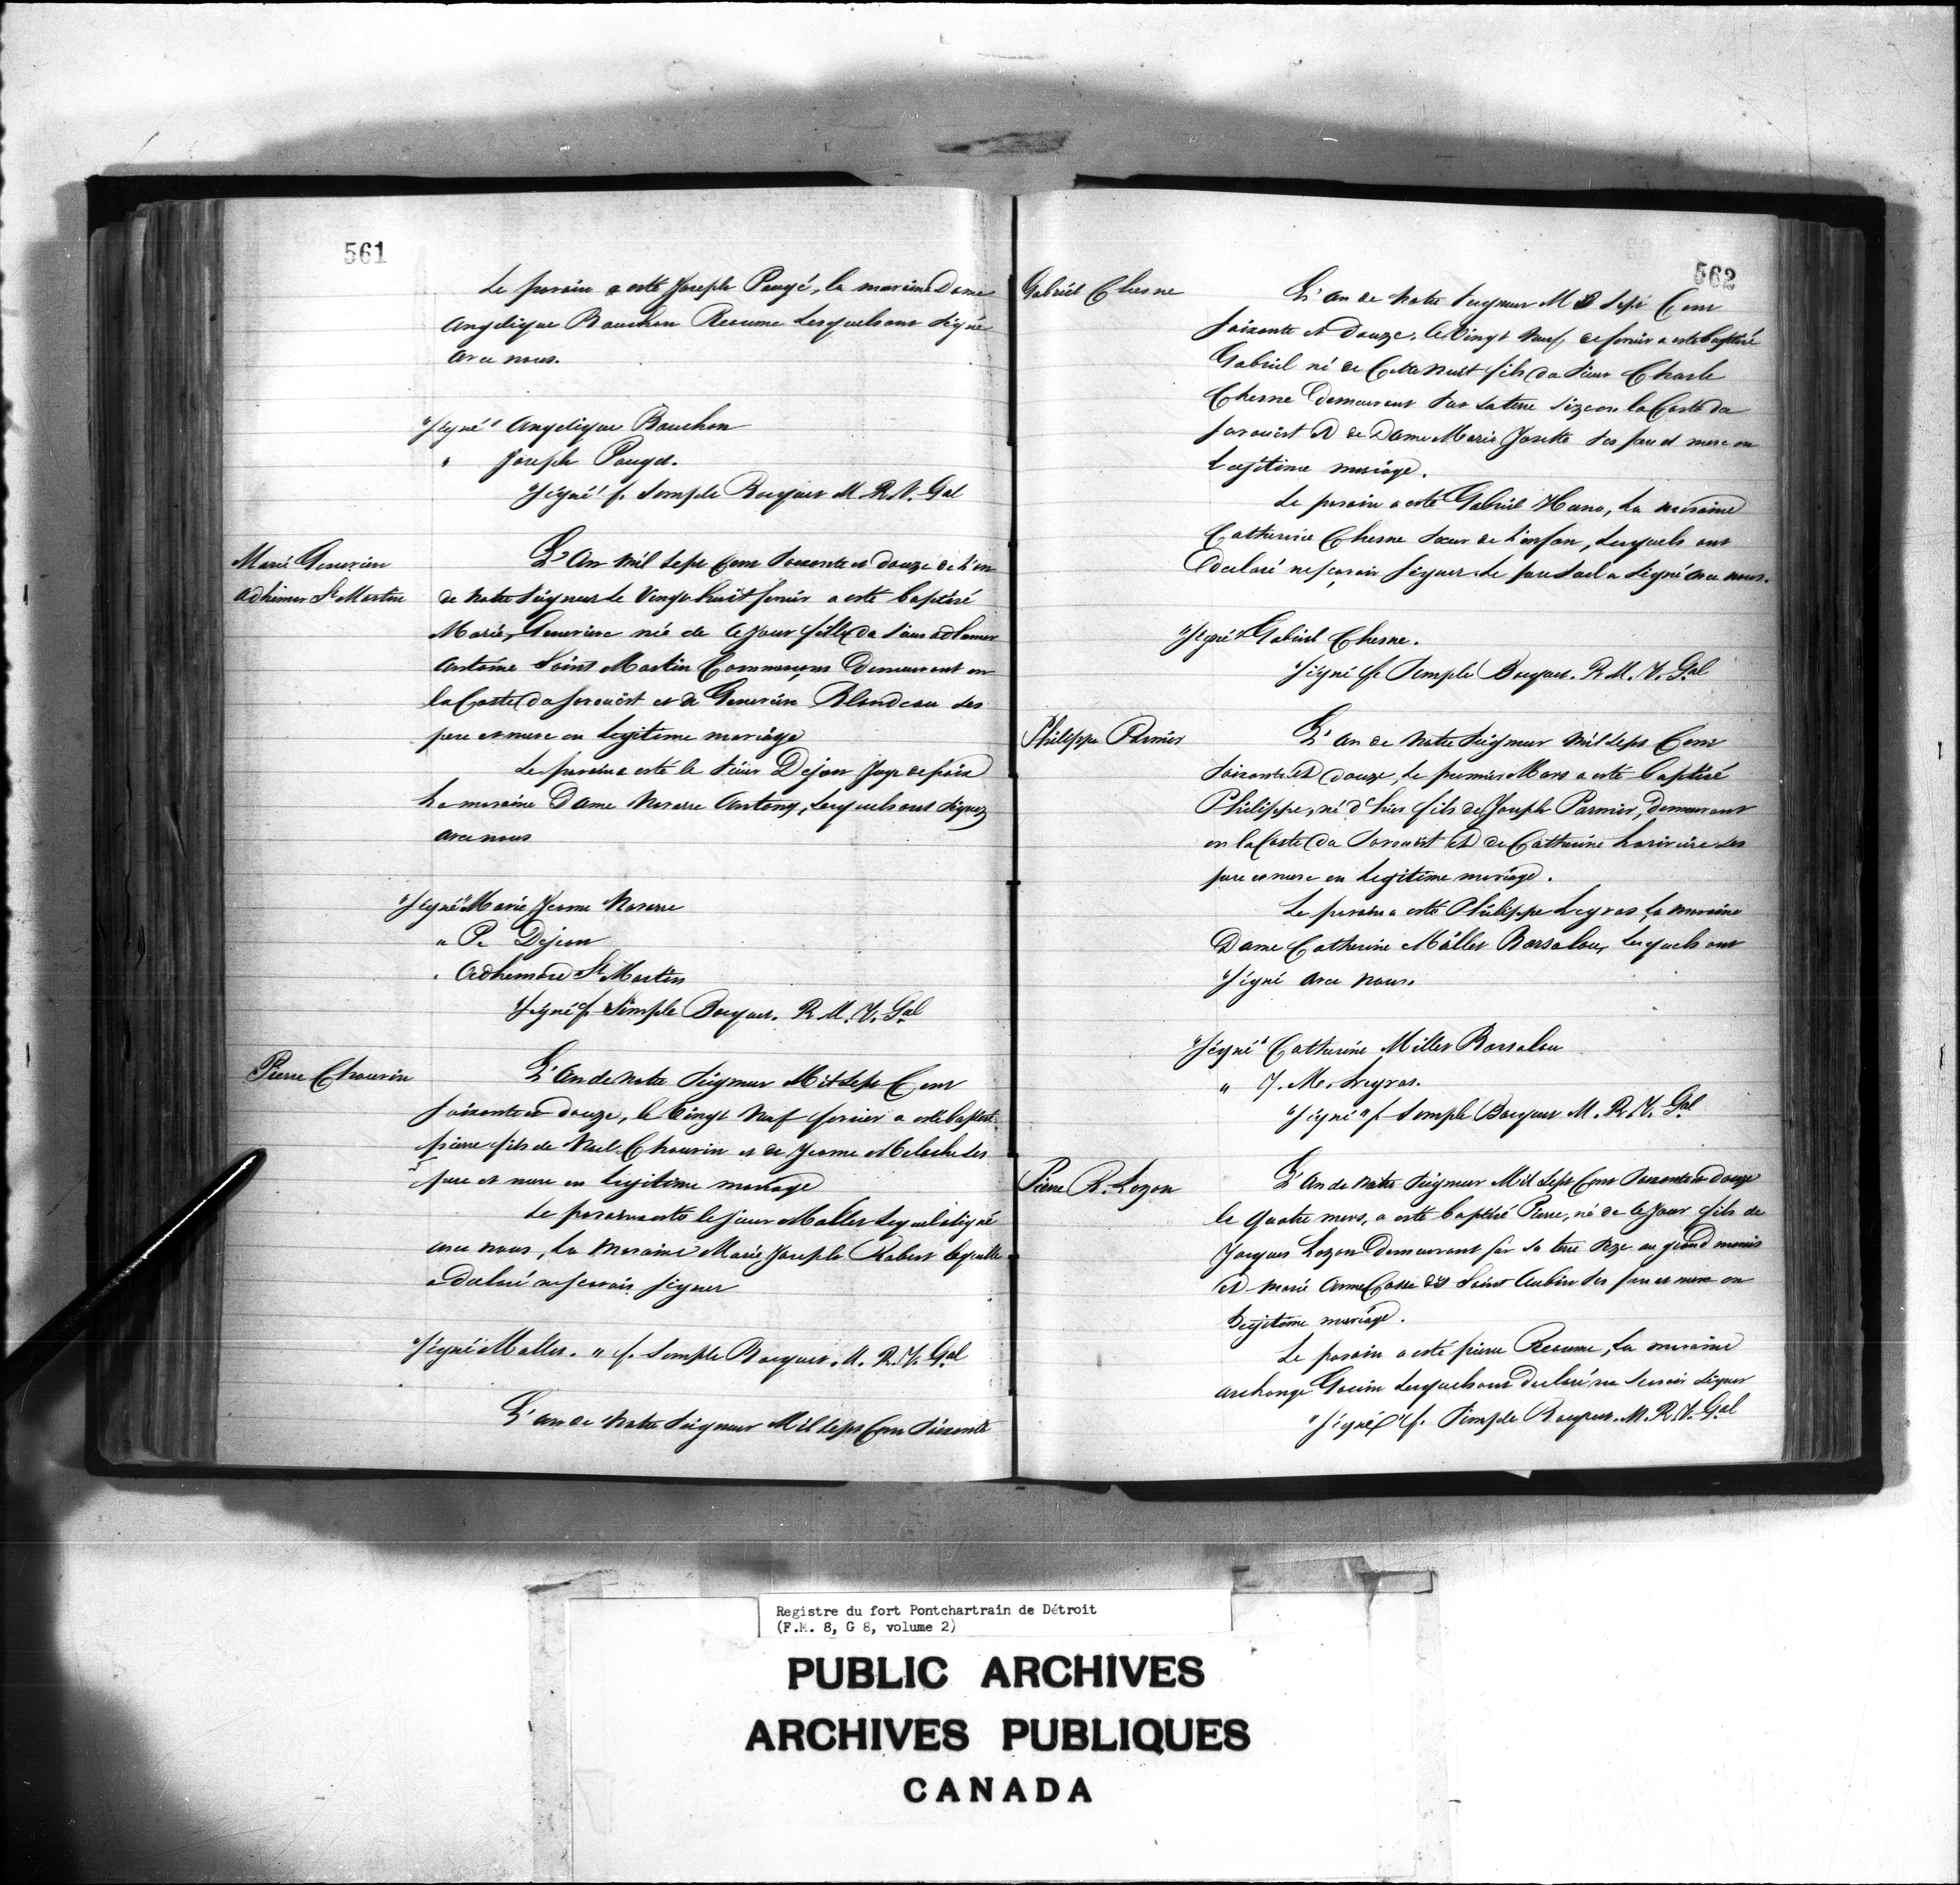 561
Le parain a esté Joseph Pougé, la maraine Dame
Angelique Bauchon Reaume Lesquels ont Signé
avec nous.
"Signé" Angelique Bauchon
" Joseph Pouget.
"Signé" f. Simple Bocquet M. R. V. Gal
Marie Genevieve
Adhemer St Martin
L'An Mil Sept Cent Soixante et douze de L'an
de Notre Seigneur le Vingt huit fevrier a esté baptisé
Marie, Genevieve née de ce jour fille du Sieur adhemer
Antoine Saint Martin Commerçant Demeurant en
la Coste du sorouëst et de Genevieve Blondeau Ses
pere et mere en Legitime mariage
Le parain a esté le Sieur Dejean Juge de paix
La maraine Dame Navarre Antony, Lesquels ont Signez
avec nous
"Signé" Marie Jeanne Navarre
" P. Dejean
" Adhemard St Martin
"Signé f. Simple Bocquet. R. M. V. Gal
Pierre Chauvin
L'An de Notre Seigneur Mil Sept Cent
Soixante et douze, le Vingt Neuf fevrier a esté baptisé
pierre fils de Noel Chauvin et de Jeanne Meloche Ses
pere et mere en Legitime mariage
Le parain a esté le Sieur Mallet Lequel a Signé
avec nous, La Maraine Marie Joseph Robert Laquelle
a declaré ne scavoir Signer
"Signé" Mallet. " f. Simple Bocquet. M. R. V. Gal
L'an de Notre Seigneur Mil Sept Cent Soixante
562
Gabriel Chesne
L'An de Notre Seigneur Mil Sept Cent
Soixante et Douze, le Vingt Neuf de fevrier a esté baptisé
Gabriel né de Cette Nuit fils du Sieur Charle
Chesne Demeurant Sur Sa terre Size en la Coste du
sorouëst et de Dame Marie Josette Ses pere et mere en
Legitime mariage.
Le parain a esté Gabriel, La maraine
Catherine Chesne Sœur de L'enfan, Lesquels ont
Declaré ne scavoir Signer. Le pere Seul a Signé avec nous.
"Signé" Gabriel Chesne.
"Signé f. Simple Bocquet. R. M. V. Gal
Philippe Parnier
L'An de Notre Seigneur Mil Sept Cent
Soixante et douze, Le premier Mars a esté baptisé
Philippe, né d'hier fils de Joseph Parnier, Demeurant
en la Coste du Sorouëst et de Catherine Lariviere Ses
pere et mere en Legitime mariage.
Le parain a esté Philippe Legras La Maraine
Dame Catherine Mallet Barsalou, Lesquels ont
Signé avec Nous.
"Signé" Catherine Millet Barsalou
" J. M. Legras.
"Signé" f. Simple Bocquet M. R. V. Gal
Pierre R. Lozon
L'An de Notre Seigneur Mil Sept Cent Soixante et douze
le Quatre mars, a esté baptisé Pierre, né de ce jour fils de
Jacques Lozon Demeurant sur Sa terre Size au grand marais
et marie Anne Casse dit Saint Aubin Ses pere et mere en
Legitime mariage.
Le parain a esté pierre Reaume, La maraine
archange Gouin Lesquels ont declaré ne Scavoir Signer
"Signé" f. Simple Bocquet. M. R. V. Gal
Registre du fort Pontchartrain de Détroit
(F.M. 8, G 8, volume 2)
PUBLIC ARCHIVES
ARCHIVES PUBLIQUES
CANADA